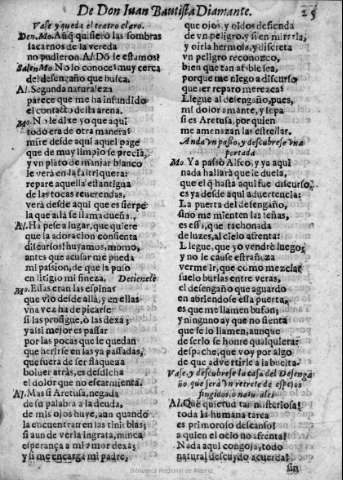 De Don Iuan Bautista Diamante. 25
Vase y queda el teatro claro.
Den. Mo. Aũq quisiero las sombras
sacarnos de la vereda
no pudieron. Al. Dō le estamos?
Sale Mo. No lo conoces? muy cerca
del desengaño que busca.
Al. Segunda naturaleza
parece que me ha infundido
el contacto de la arena.
Mo. No le dixe yo que aqui
todo era de otra manera?
mire desde aqui aquel page
que de muy limpio se precia,
y un plato de manjar blanco
le verà en la faltriquera:
repare aquella estantigua
de las tocas reuerendas,
verà desde aqui que es sierpe
la que allà se llama dueña.
Al. Ha pese a lugar, que quiere
que la adoracion consienta
delirios! huyamos, momo,
antes que acusar me pueda
mi passion, de que la puso
en litigio mi fineza. Detienese
Mo. Estas eran las espinas
que vio desde allà, y en ellas
una vez ha de picarse
si las prosigue, ò las dexa;
y assi mejor es passar
por las pocas que le quedan
que herirse en las ya passadas,
que fuera de ser flaqueza
boluer atràs, es desdicha
el dolor que no escarmienta.
Al. Mas si Aretusa, negada
de su palabra a la deuda,
de mis ojos huye, aun quando
la encuentran en las tinieblas;
si aun de verla ingrata, nunca
esperança a mi amor dexa;
y si me encarga mi padre,
que ojos, y oìdos defienda
de vn peligro, y si en mirarla,
y oirla hermosa, y discreta
vn peligro reconozco,
bien que tan atrible sea,
porque me niego a discurso
que ser reparo merezca?
Llegue al desengaño, pues,
mi dolor amante, y sepa
si es Aretusa, por quien
me amenazan las estrellas.
Anda vn passo, y descubrese vna
portada
Mo. Ya passò Alfeo, y ya aqui
nada hallarà que le duela,
que el q̃ hasta aqui fue discurso,
es ya desde aqui aduertencia:
La puerta del desengaño,
sino me mienten las señas,
es essa, que tachonada
de luzes, al cielo afrenta:
Llegue, que yo vendrè luego;
y no le cause estrañeza
verme ir, que como mezclar
suelo burlas entre veras,
el desengaño que aguardo
en abriendose essa puerta,
es que me llamen bufon;
y ninguno ay que no sienta
que se lo llamen, aunque
de serlo se honre qualquiera:
despache, que voy por algo
de que advertirle a la buelta.
Vase, y descubrese la casa del Desenga
ño, que serà vn retrete de espejos
fingidos, o naturales
Al. Què quietud tan misteriosa!
toda la humana tarea
es primoroso descanso!
a quien el ocio no afrenta!
Nada aqui congoja, todo
natural descuydo acuerda!
sin
Biblioteca Regional de Madrid